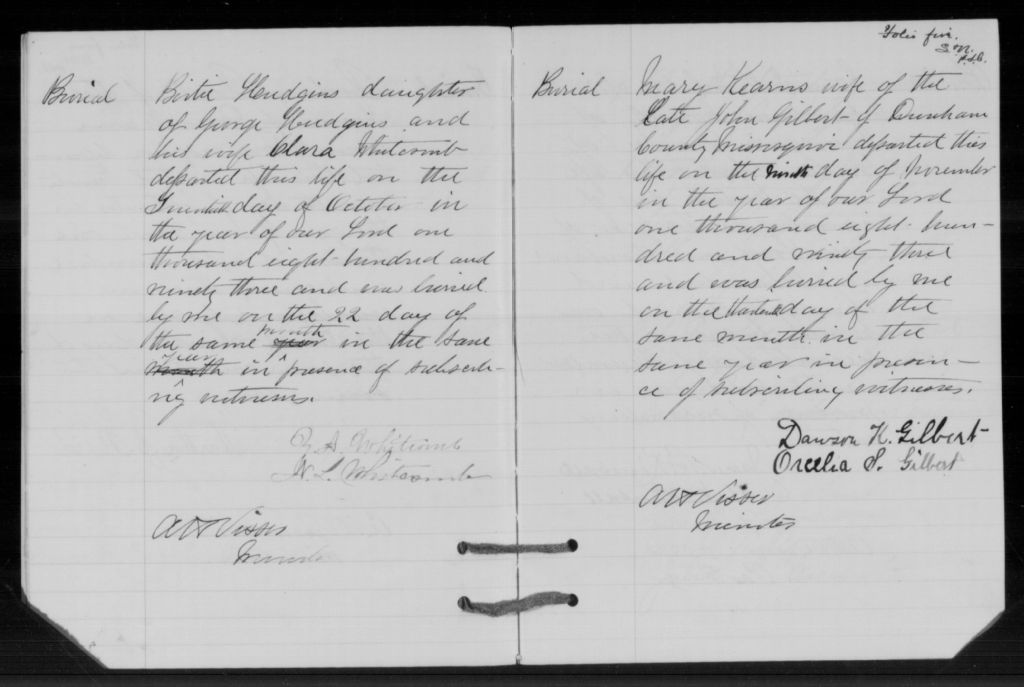 Burial
Birtie Hudgins daughter
of George Hudgins and
his wife Clara Whitcomb
departed this life on the
day of October in
the year of our Lord one
thousand eight hundred and
ninety three and was buried
by me on the 22 day of
the same year month in the same
month year in presence of subscrib-
ing witnesses.
A. Whitcomb
W. L. Whitcomb
Minister
Folio five.
Burial
Mary Kearns wife of the
Late John Gilbert of Dunham
County Missisquoi departed this
life on the ninth day of November
in the year of our Lord
one thousand eight hun-
dred and ninety three
and was burried by me
on the day of the
same month in the
same year in presen-
ce of subscribing witnesses.
Dawson K. Gilbert
Orcelia S. Gilbert
Minister